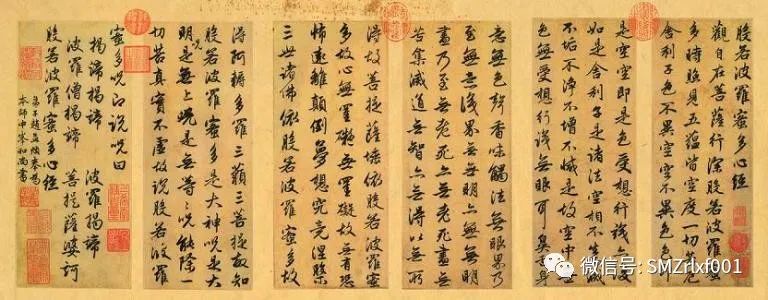 般若波羅蜜多心經
觀自在菩薩行深般若波羅蜜
多時照見五蘊皆空度一切苦厄
舍利子色不異空空不異色色即
是空空即是色受想行識亦復
如是舍利子是諸法空相不生不滅
不垢不淨不增不減是故空中無
色無受想行識無眼耳鼻舌身
意無色聲香味觸法無眼界乃
至無意識界無無明亦無無明
盡乃至無老死亦無老死盡無
苦集滅道無智亦無得以無所
得故菩提薩埵依般若波羅蜜
多故心無罣礙無罣礙故無有恐
怖遠離顛倒夢想究竟涅槃
三世諸佛依般若波羅蜜多故
得阿耨多羅三藐三菩提故知
般若波羅蜜多是大神咒是大
明咒是無上咒是無等等咒能除一
切苦真實不虛故說般若波羅
蜜多咒即說咒曰
揭諦揭諦 波羅揭諦
波羅僧揭諦 菩提薩婆訶
般若波羅蜜多心經
弟子趙孟頫奉為
本師中峯和尚書
微信号: SMZrlxf001